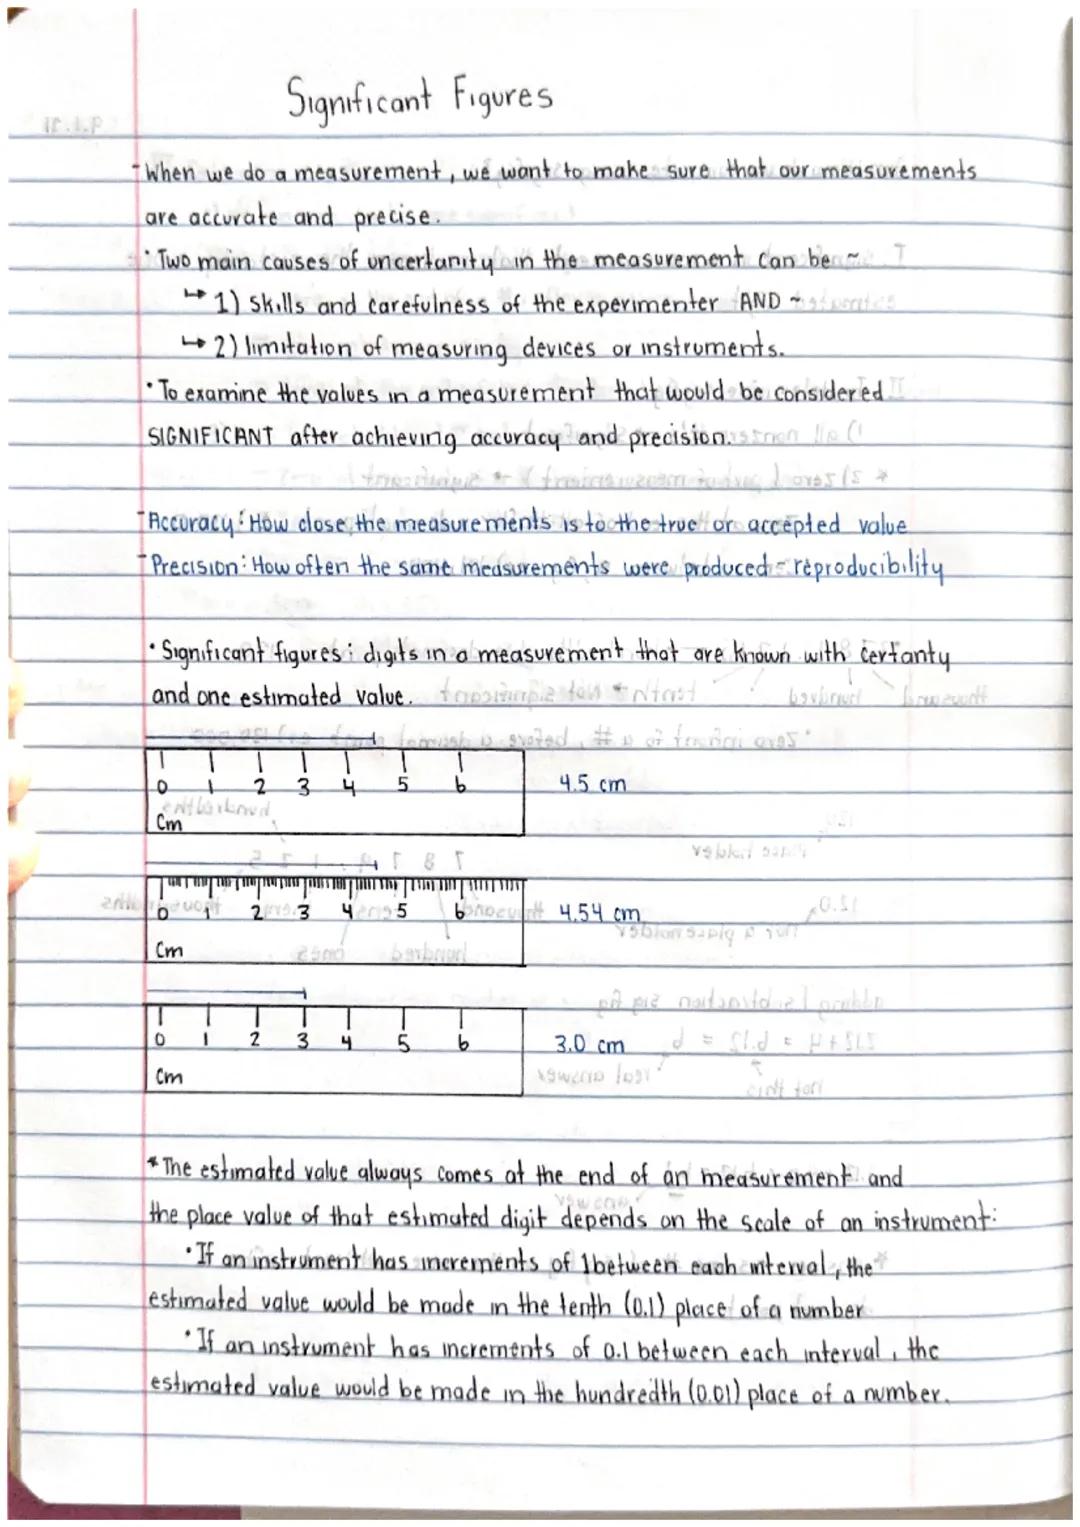 Significant Figures
- When we do a measurement, we want to make sure that our measurements
are accurate and precise.
• Two main causes of uncertanity in the measurement can be ~
↳ 1) skills and carefulness of the experimenter AND ~
↳ 2) limitation of measuring devices or instruments.
• To examine the values in a measurement that would be considered
SIGNIFICANT after achieving accuracy and precision.
- Accuracy: How close the measurements is to the true or accepted value
- Precision: How often the same measurements were produced - reproducibility
• Significant figures: digits in a measurement that are known with certanty
and one estimated value.
0 1 2 3 4 5 6 4.5 cm
Cm
0 1 2 3 4 5 6 4.54 cm
Cm
0 1 2 3 4 5 6 3.0 cm
Cm
* The estimated value always comes at the end of an measurement and
the place value of that estimated digit depends on the scale of an instrument:
• If an instrument has increments of 1 between each interval, the
estimated value would be made in the tenth (0.1) place of a number
• If an instrument has increments of 0.1 between each interval, the
estimated value would be made in the hundredth (0.01) place of a number.